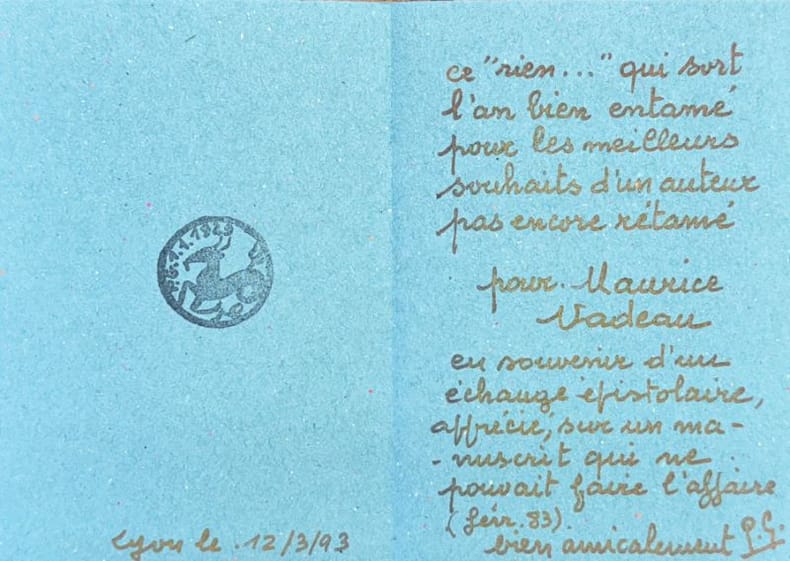 Lyon le 12/3/93
ce "rien..." qui sort
l'an bien entamé
pour les meilleurs
souhaits d'un auteur
pas encore rétamé
pour Maurice
Nadeau
en souvenir d'un
échange épistolaire,
apprécié, sur un ma-
-nuscrit qui ne
pouvait faire l'affaire
(févr. 83).
bien amicalement P.G.